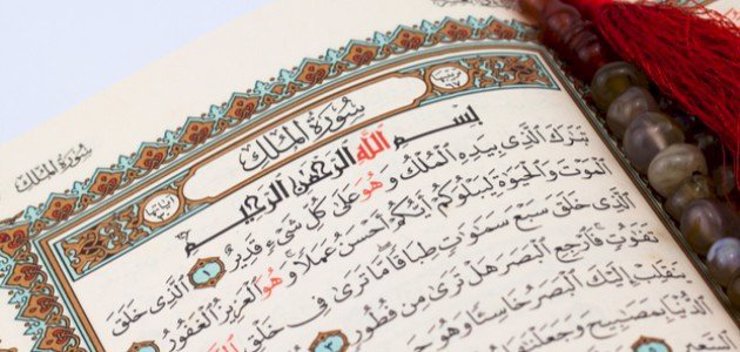 سُورَةُ المُلْكِ
سُورَةُ المُلْكِ
آيَاتُهَا ٣٠
بِسْمِ اللَّهِ الرَّحْمَٰنِ الرَّحِيمِ
تَبَٰرَكَ الَّذِى بِيَدِهِ الْمُلْكُ وَهُوَ عَلَىٰ كُلِّ شَىْءٍ قَدِيرٌ ١ الَّذِى خَلَقَ
الْمَوْتَ وَالْحَيَوٰةَ لِيَبْلُوَكُمْ أَيُّكُمْ أَحْسَنُ عَمَلًا وَهُوَ الْعَزِيزُ الْغَفُورُ
الَّذِى خَلَقَ سَبْعَ سَمَٰوَٰتٍ طِبَاقًا مَا تَرَىٰ فِى خَلْقِ
تَفَٰوُتٍ فَارْجِعِ الْبَصَرَ هَلْ تَرَىٰ مِن فُطُورٍ ٣
يَنقَلِبْ إِلَيْكَ الْبَصَرُ خَاسِئًا وَهُوَ
الدُّنْيَا بِمَصَٰبِيحَ وَجَعَلْنَٰهَا
السَّعِيرِ